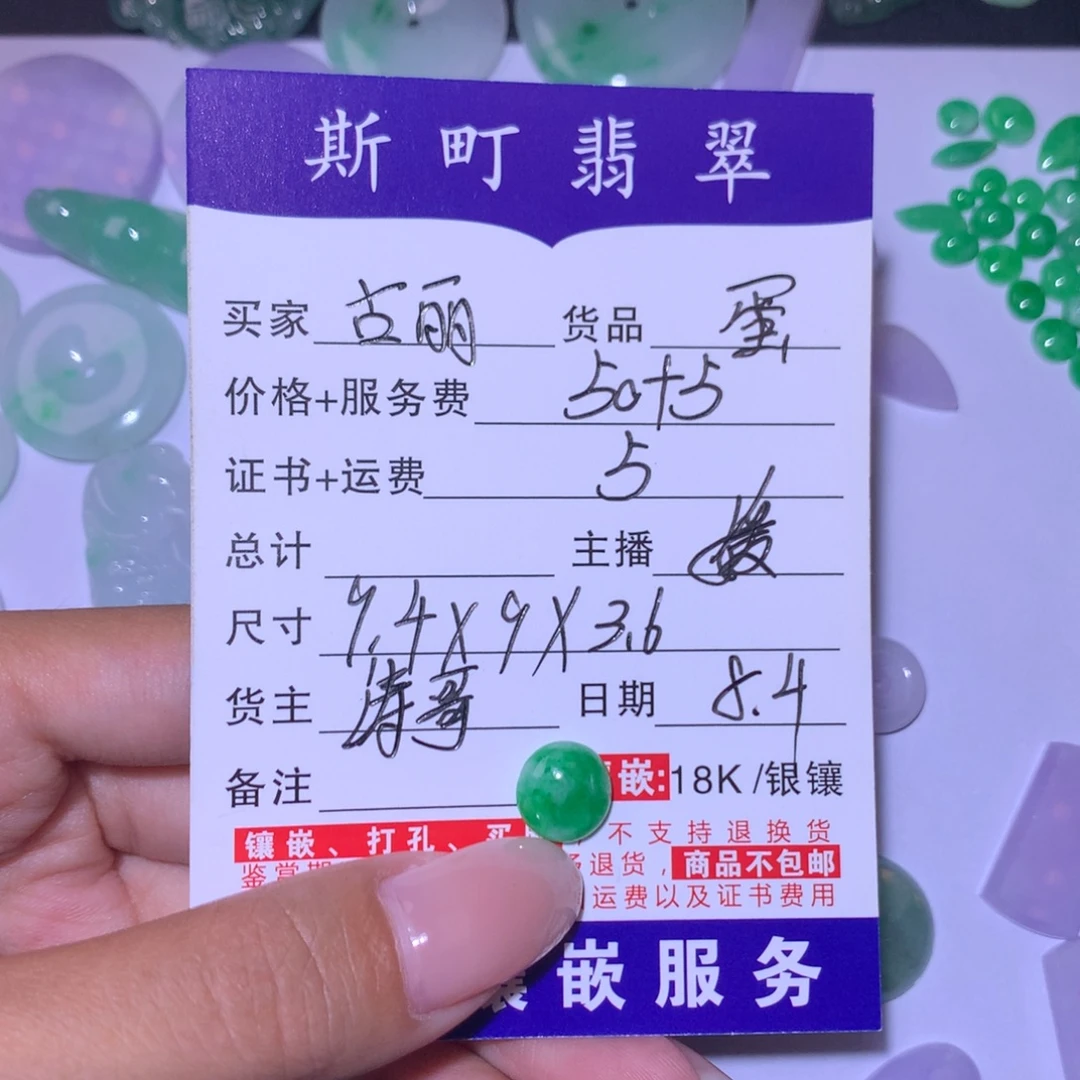 斯町翡翠
买家 古丽 货品 蛋
价格+服务费 50+5
证书+运费 5
总计 主播
尺寸 9.4X9X3.6
货主 涛哥 日期 8.4
备注 嵌:18K/银镶
镶嵌、打孔、买 不支持退换货
鉴赏期 退货,商品不包邮
运费以及证书费用
镶嵌服务